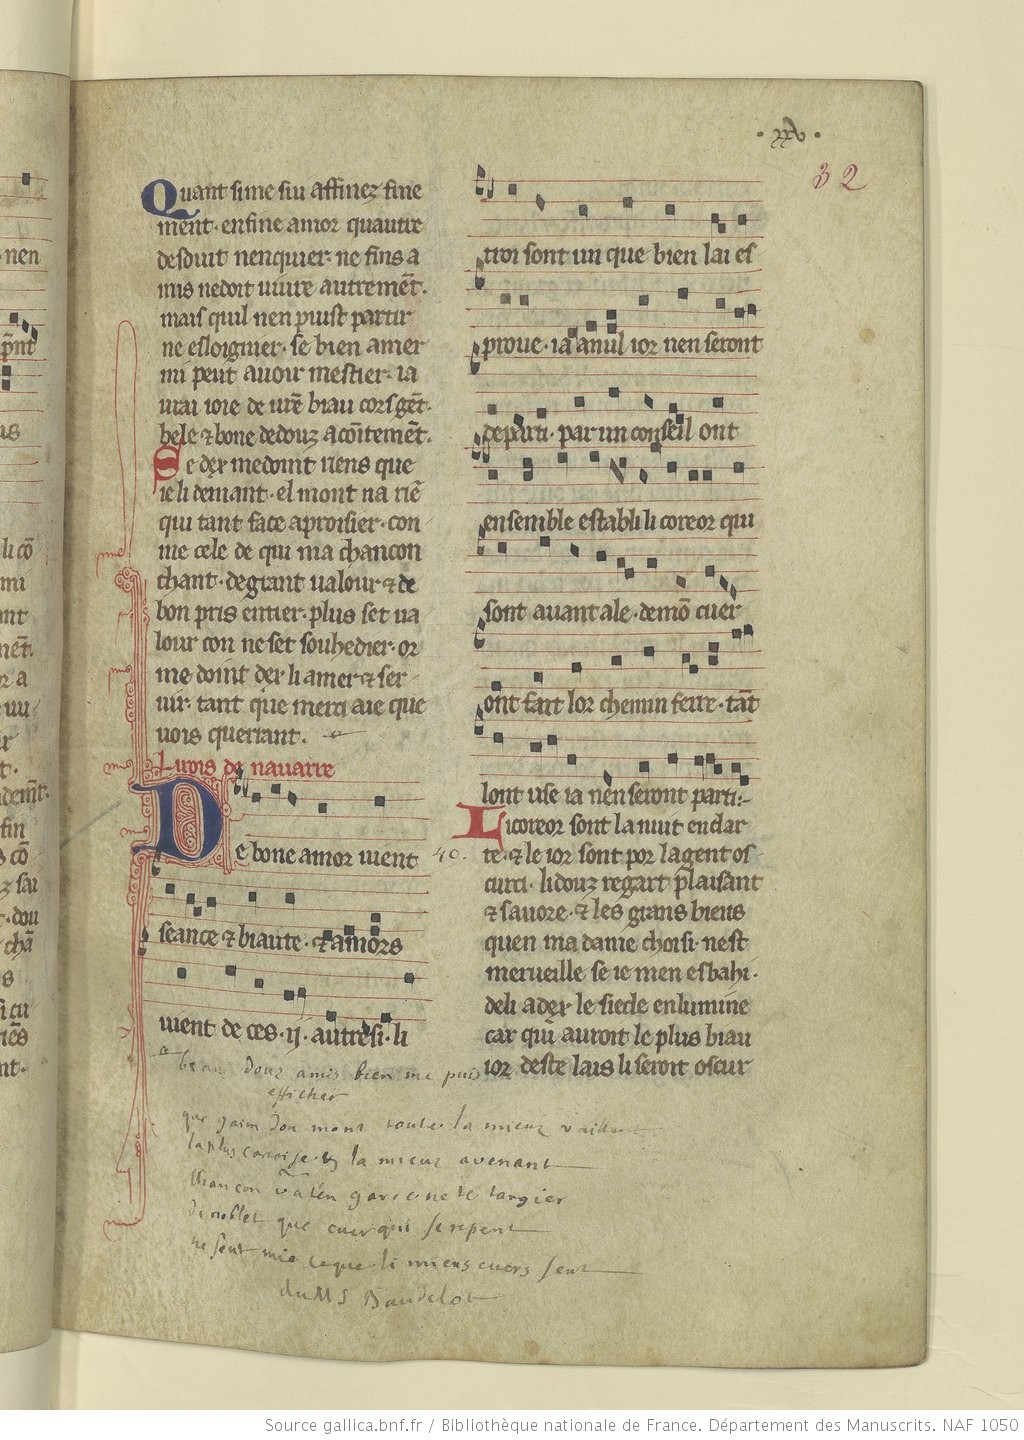 ·xxv·
32
Quant sime siu affinez fine
ment· en fine amor quautre
desduit nenquier· ne fins a
mis ne doit uiure autremēt·
mais quil nen puist partir
ne esloignier· se bien amer
mi peut auoir mestier· ia
urai ioie de urē biau cors gēt·
bele ⁊ bone dedouz acōitemēt·
Se dex me doint riens que
ie li demant· el mont na riē
qui tant face aproisier· con
me cele de qui ma chancon
chant· de grant ualour ⁊ de
bon pris entier· plus set ua
lour con ne set souhedier· or
me doint dex li amer ⁊ ser
uir· tant que merci aie que
uois querant·
Li rois de nauarre
De bone amor uient
seance ⁊ biaute· ⁊ amors
uient de ces· ij· autresi· li
troi sont un que bien lai es
proue· ia a nul ior nen seront
departi· par un conseil ont
ensemble establi li coreor qui
sont auant ale· de mō cuer
ont fait lor chemin ferre· tāt
lont use ia nen seront parti:
Li coreor sont la nuit en clar
te· ⁊ le ior sont por la gent os
curci· li douz regart plaisant
⁊ sauore· ⁊ les grans biens
quen ma dame choisi· nest
merueille se ie men esbahi·
de li a dex le siecle enlumine
car qui auroit le plus biau
ior deste lais li seroit oscur
40.
beau douz amis bien me puis
afficher
que jaim dou mont toute la mieuz vaillant
la plus cortoise ⁊ la mieuz avenant
chancon va ten garde ne te targier
di noblet que cuer qui se repent
ne sent mie ce que li miens cuers sent
du MS Baudelot
nen
Source gallica.bnf.fr / Bibliothèque nationale de France. Département des Manuscrits. NAF 1050